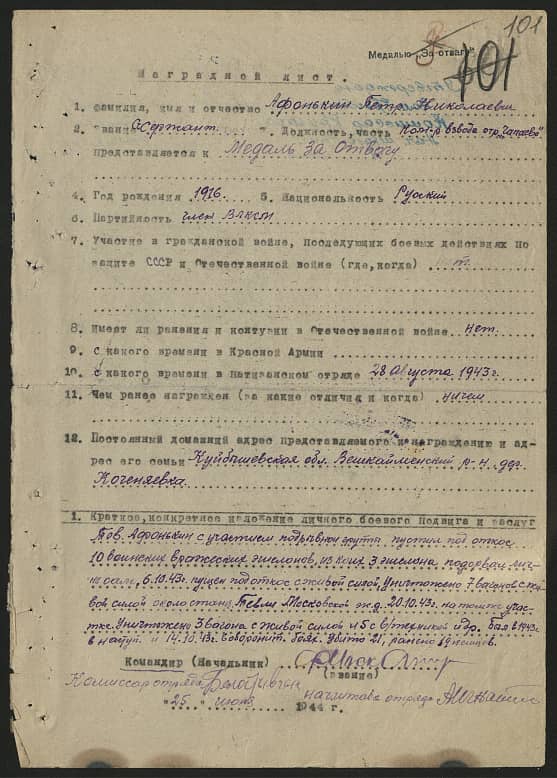 101
Медалью „За отвагу“
101
Наградной лист.
1. Фамилия, имя и отчество Афонькин Петр Николаевич
2. Звание Сержант. Должность, часть Ком-р взвода отр. „Чапаева“
представляется к Медаль За Отвагу
4. Год рождения 1916. 5. Национальность Руский
6. Партийность член ВЛКСМ
7. Участие в гражданской войне, последующих боевых действиях по
защите СССР и Отечественной войне (где, когда)
8. Имеет ли ранения и контузии в Отечественной войне нет.
9. С какого времени в Красной Армии
10. С какого времени в партизанском отряде 28 Августа 1943 г.
11. Чем ранее награжден (за какие отличия и когда) ничем
12. Постоянный домашний адрес представляемого к награждению и ад-
рес его семьи Куйбышевская обл. Вешкайменский р-н. дер.
Коченяевка.
1. Краткое, конкретное изложение личного боевого подвига и заслуг
Тов. Афонькин с участием подрывной группа. пустил под откос
10 воинских вражеских эшелонов, из коих 3 эшелона, подорвал лич-
но сам, 6.10.43г. пущен под откос с живой силой, Уничтожено 7 вагонов с жи-
вой силой около станц. Московской ж.д. 20.10.43г. на том же учас-
тке. Уничтожено 3 вагона с живой силой и 5 с в/техникой и др. боя в 1943г.
в наступ. и 14.10.43г. в оборонит. Убито 21, ранено 19 немцев.
Командир (Начальник)
(звание)
Комиссар отряда начштаба отряда
"25" июня 1944 г.